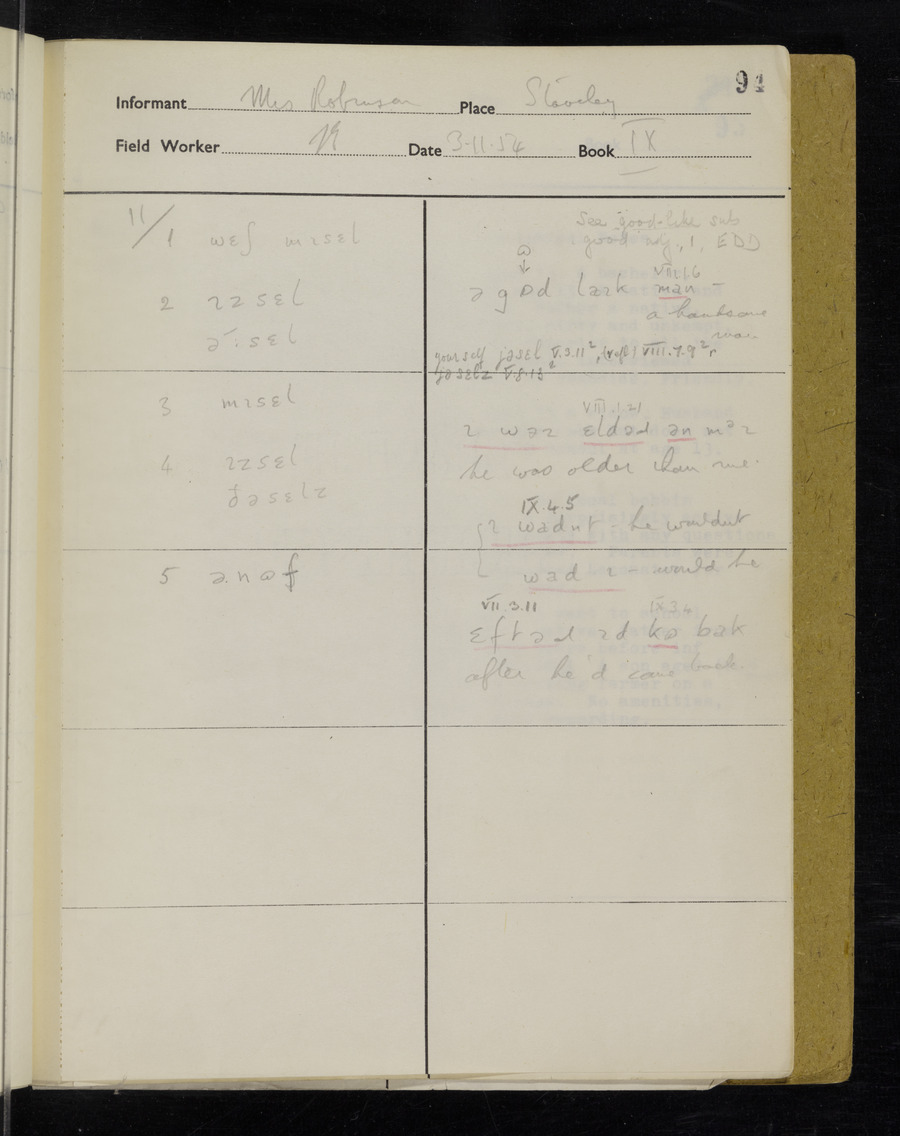 91
Informant Mrs Robinson Place Staveley
Field Worker Date 3.11.54 Book IX
11/1 wɛʃ mɪsɛl
2 ɪzsɛl
ə˞:sɛl
3 mɪsɛl
4 ɪzsɛl
ðəsɛlz
5 ənɷf
See good-like sub
good adj., 1, EDD
ɷ
↓
VIII.1.6
ə gɒd laɪk man —
a handsome
man
yourself jəsɛl V.3.11², (refl) VIII.7.9²,
jəsɛlz V.8.13²
VIII.1.21
ɪ wəz ɛldəɹ ən mᵊɪ
he was older than me.
IX.4.5
ɪ wadnt - he wouldnt
wad ɪ - would he
VII.3.11 IX.3.4
ɛftəɹ ɪd kə bak
after he'd come back.